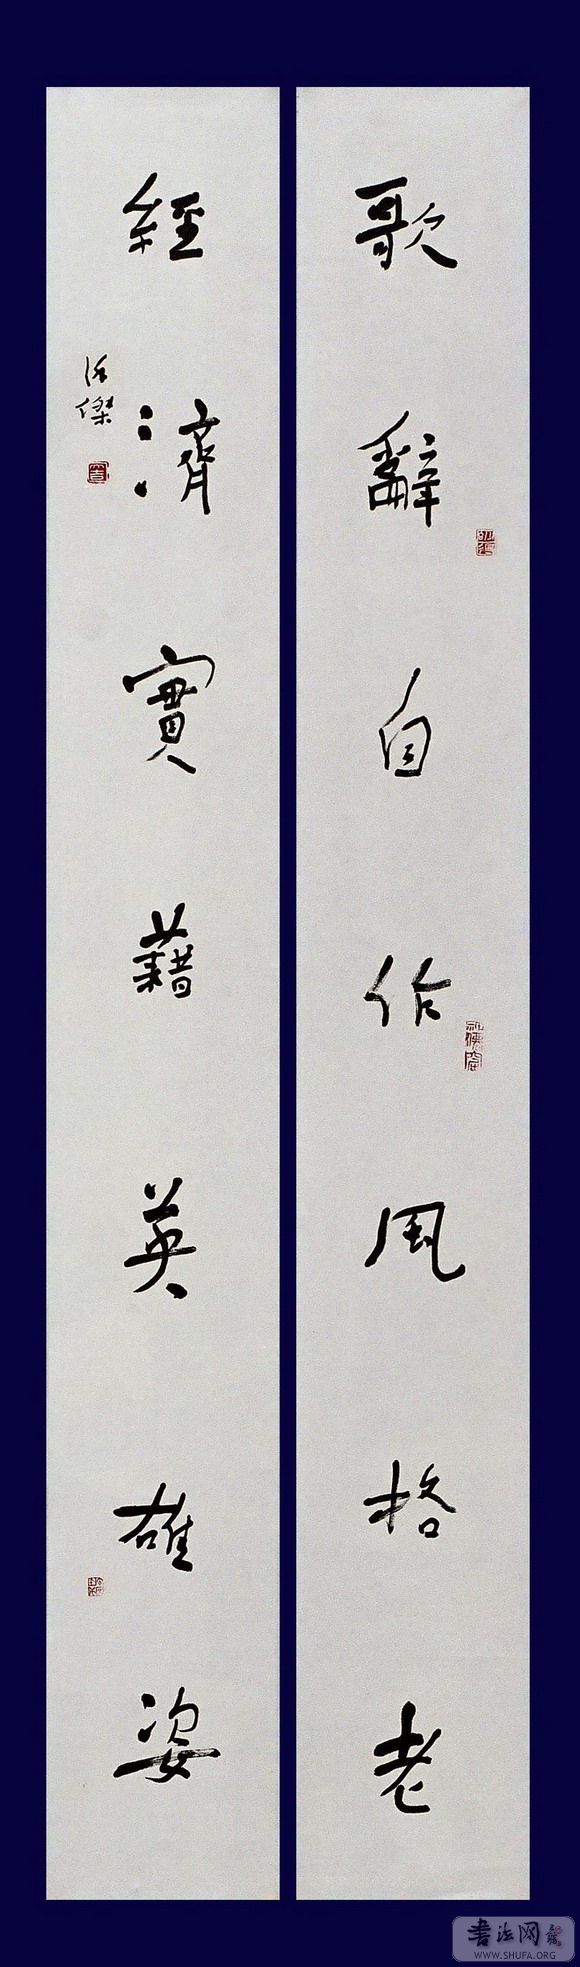 歌辭自作風格老
經濟實藉英雄姿
書法网
WWW.SHUFA.ORG